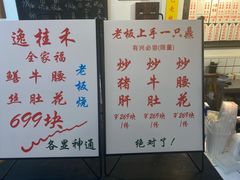 逸桂禾
全家福
鳝丝
牛肚
腰花
老板烧
699块
各显神通
老板上手一只鼎
有兴必留(限量)
炒猪肝
炒牛肚
炒腰花
¥269块
1份
¥269块
1份
¥269块
1份
绝对了!